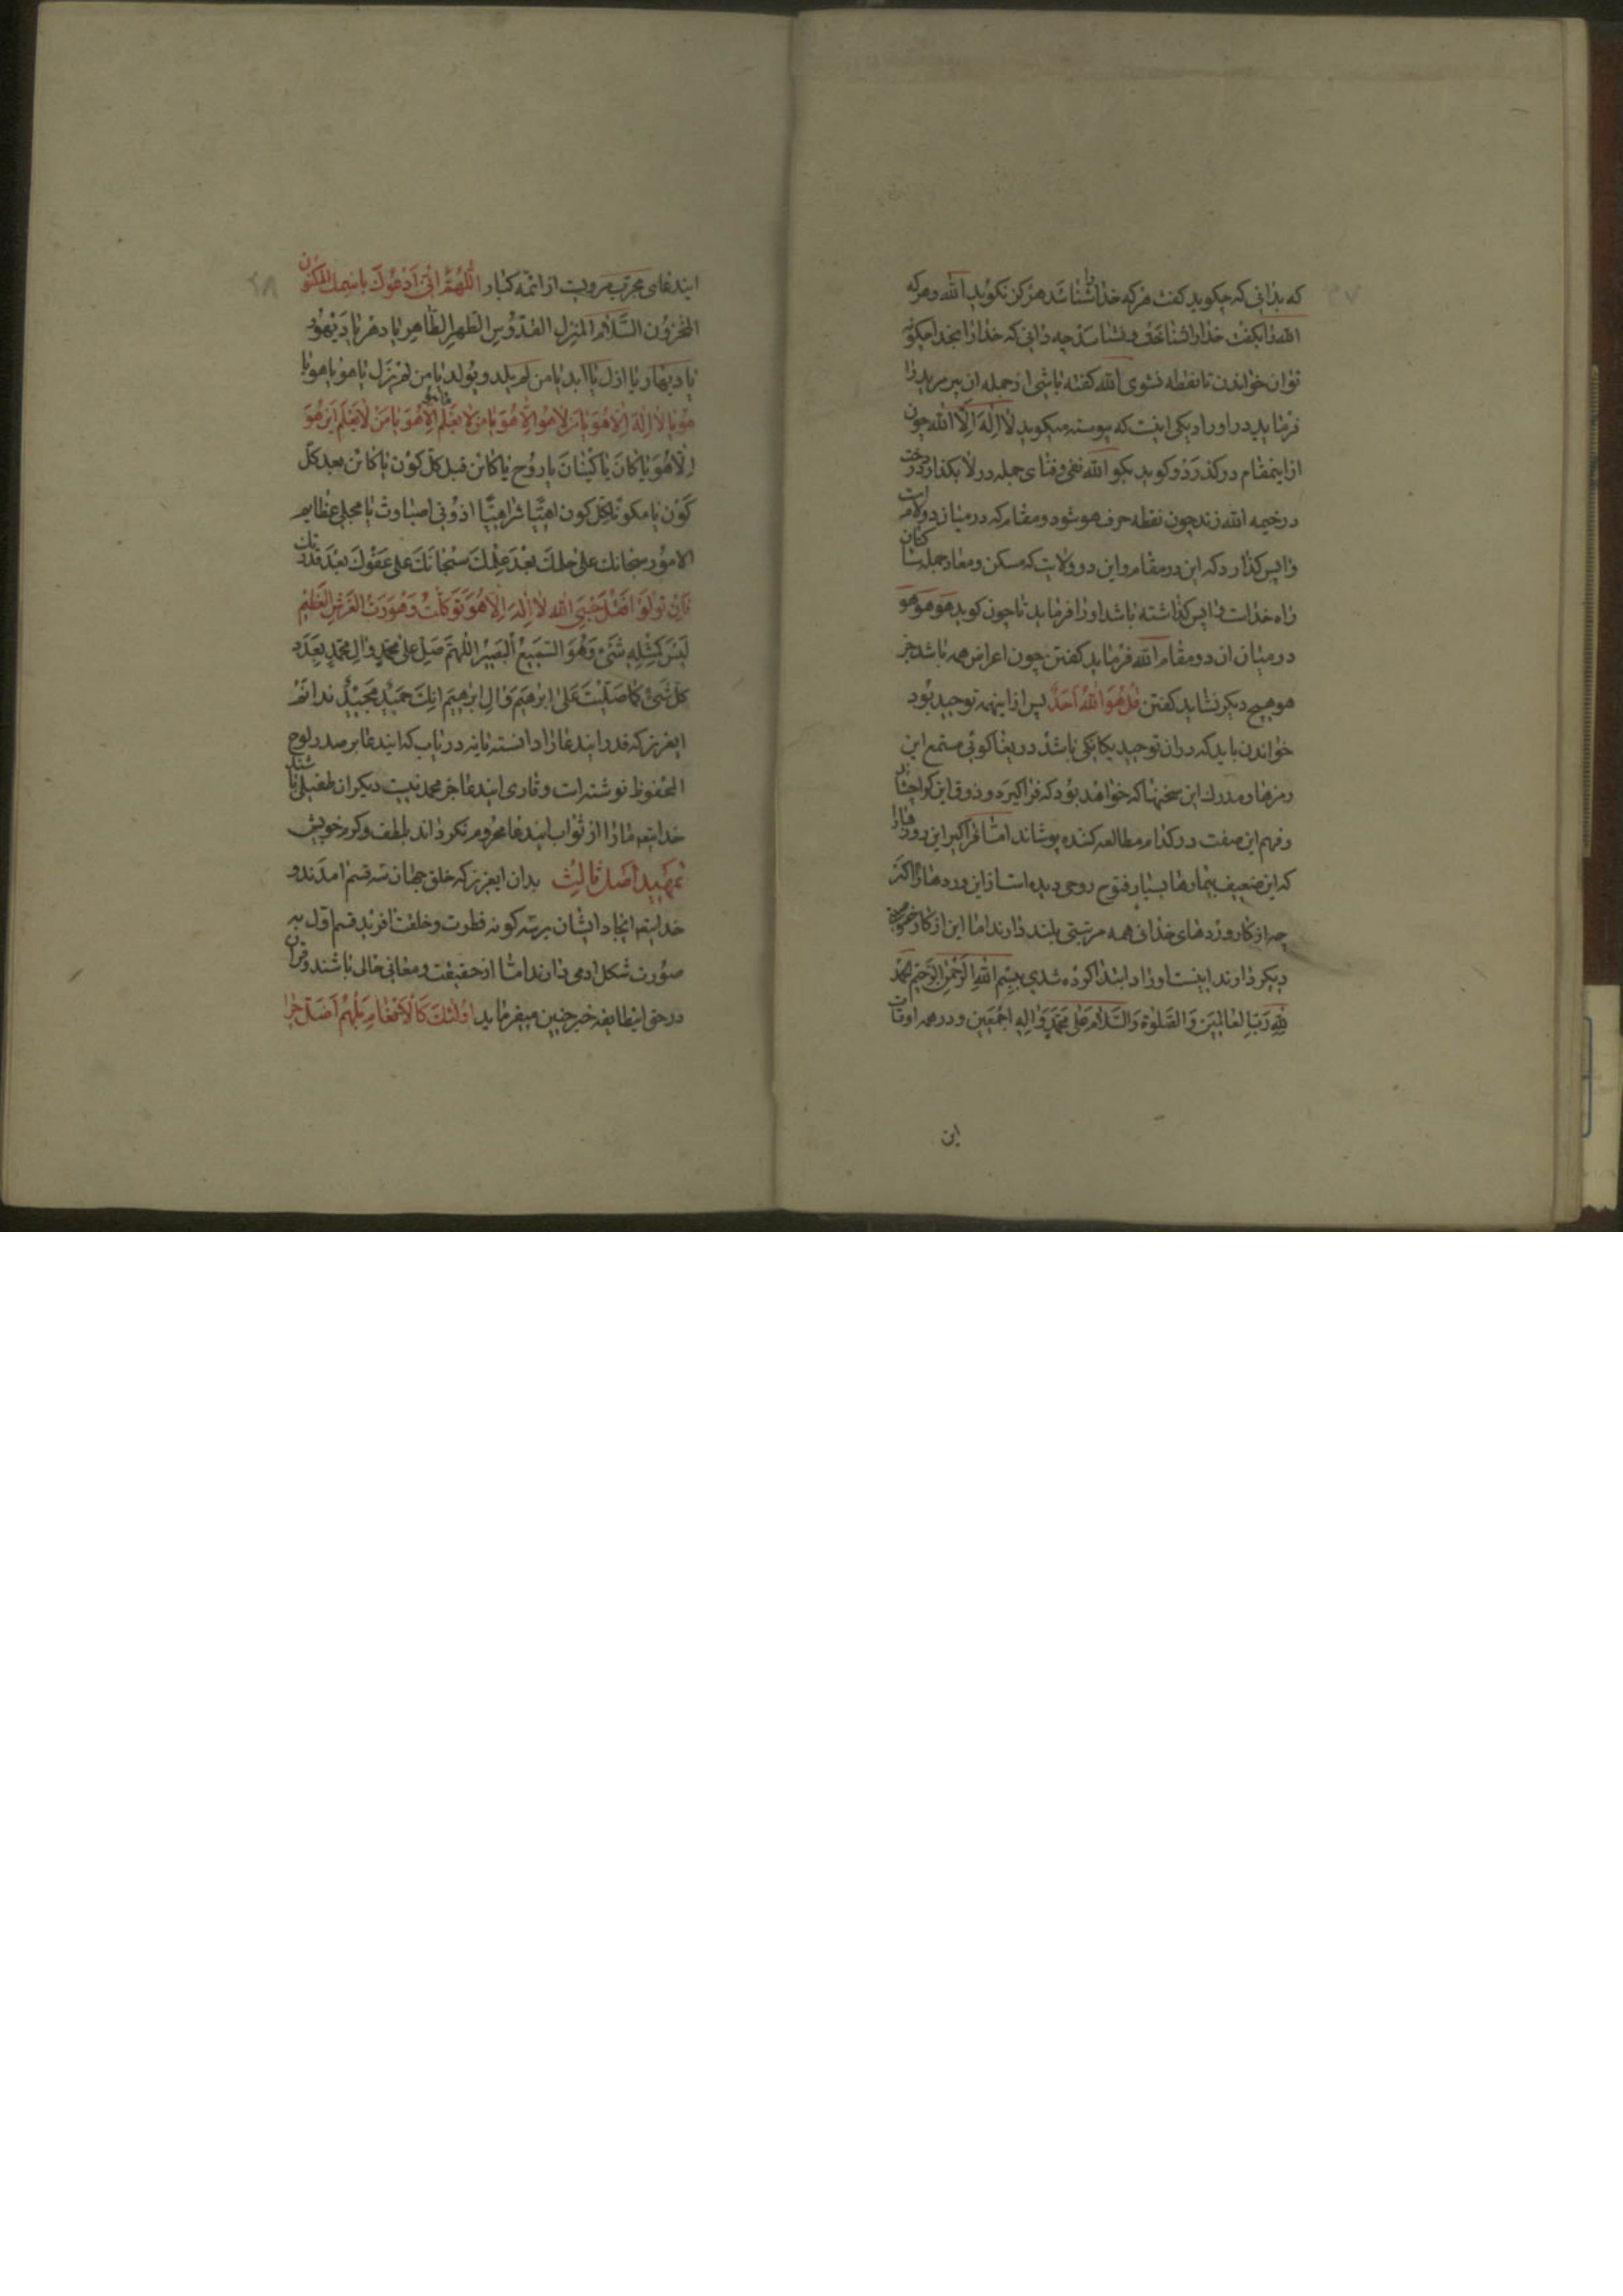 که بدانی که چکوید کفت هر که خدا را شناسد هرکز نکوید الله و هر که
الله را بکفت خدا را شناختن و نشناسد چه دانی که خدا را بخدا چکونه
توان خواندن تا نقطه نشوی الله کفته باشی از جمله ان پیر مرید را
فرماید در اوراد یکی اینست که پیوسته میکوید لا اله الا الله چون
ازاینمقام درکذرد و کوید بکو الله نفی و فنای جمله در لا بکذارد رخت
در خیمه الله زند چون نقطه حرف هو شود و مقام که در میان دو لام است
واپس کذارد که این در مقام و این دو ولایت که مسکن و معاد جمله سا کنان
راه خداست واپس کذاشته باشد او را فرماید تا چون کوید هو هو هو
در میان ان دو مقام الله فرماید کفتن چون اعراض همه باشد جز
هو هیچ دیکر نشاید کفتن قُل هُوَ اللهُ اَحَدٌ پس از اینهمه توحید بود
خواندن باید که دران توحید یکانکی باشد دریغا کوئی مستمع این
رمزها و مدرک این سخنها که خواهد بود که فرا کیرد و ذوق این کرا چشانند
و فهم این صفت در کدام مطالعه کننده پوشاند امّا فراکیر این ورد ها را
که این ضعیف بیمارها بسیار فتوح روحی دیده است از این وردها اکر
چه اذکار و وردهای خدا همه مرتبتی بلند دارند امّا این اذکار خصوصیتی
دیکر دارند اینست اوراد ابتدا کرده شدی بِسمِ اللهِ الرَّحمٰنِ الرَّحیم الحَمدُ
لِلّٰهِ رَبِّ العالَمینَ وَ الصَّلوٰة وَالسَّلام عَلیٰ مُحَمَّدٍ وَ الِهِ اَجمَعین و در همه اوقات
این
ایندعای مجرّب مرویست از ائمّه کبار اللّهُمَّ اِنّی اَدعُوکَ باسمِک المکنُون
المخزون السَّلام المنزل القدّوس الطهر الطّاهر یا دهر یا دَیهُور
یا دیهار یا ازل یا ابد یا من لم یلد و یولد یا من لم یزل یا هو یا هو یا
هُو یا لا اِلٰهَ اِلّا هُوَ یا مَن لا هو اِلّا هُوَ یا من لا یَعلَم ما هُوَ اِلّا هُوَ یا مَن لا یَعلَم اَینَ هُوَ
اِلّا هُوَ یا کانَ یا کینانَ یا روح یا کائن قبل کلّ کون یا کائن بعد کلّ
کَون یا مکوّناً لکل کون اهیّاً شراهیّاً اذونی اصباوث یا مجلی عظایم
الامور سبحانک علی حلمک بَعدَ عِلمِکَ سُبحانَکَ علی عَفوِکَ بَعدَ قُدرَتِک
فَاِن تَوَلَّوا فَقُل حَسبِیَ الله لا اِلٰهَ اِلّا هُوَ عَلَیهِ تَوَکَّلتُ وَهُوَ رَبُّ العَرشِ العَظیم
لَیسَ کَمِثلِهِ شَیءٌ وَهُوَ السَّمیعُ البَصیر اللّهُمَّ صَلِّ عَلیٰ مُحمّدٍ وَالِ مُحمّدٍ بِعَدَد
کلّ شَیءٍ کَما صَلَّیتَ عَلیٰ اِبرٰهیمَ وَ الِ اِبرٰهیمَ اِنَّکَ حَمیدٌ مَجیدٌ ندانم
ایعزیز که قدر ایندعا را دانسته یا نه دریاب که ایندعا بر صدر لوح
المحفوظ نوشته است و قاری ایندعا جز محمد نیست دیکران طفیلی باشند
خدایتعه ما را از ثواب ایندعا محروم نکرداند بلطف و کرم خویش
تمهید اصل ثالث بدان ایعزیز که خلق جهان سه قسم امدند و
خدایتعه ایجاد ایشان بر سه کونه فطرت و خلقت افرید قسم اوّل به
صورت شکل ادمی دارند امّا از حقیقت و معانی خالی باشند و قران
در حق اینطایفه خبر چنین میفرماید اُولٰئِکَ کَالاَنعامِ بَل هُم اَضَلّ چرا